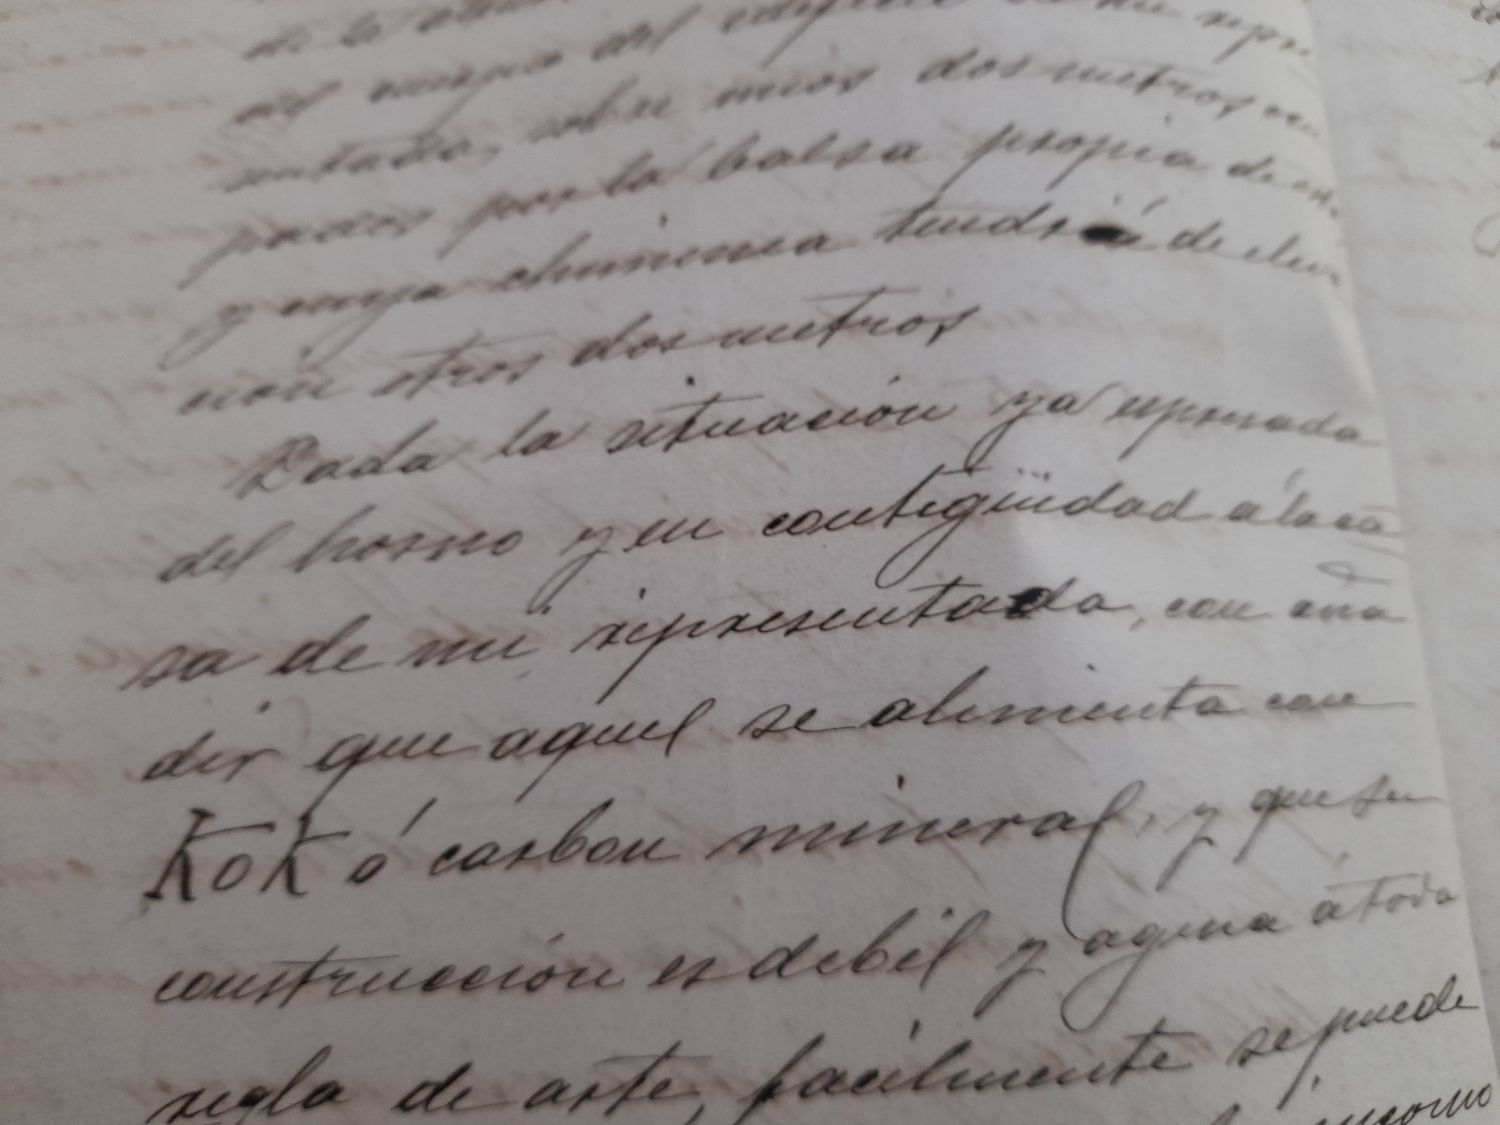 de la
del cuerpo del edificio de mi repre
sentada, sobre unos dos metros ocu
pados por la balsa propia de esta
y cuya chimenea tendrá de eleva
ción otros dos metros
Dada la situación ya expresada
del horno y en contigüidad á la ca
sa de mi representada, con aña
dir que aquel se alimenta con
KoK ó carbon mineral, y que su
construcción es debil y agena á toda
regla de arte, facilmente se puede